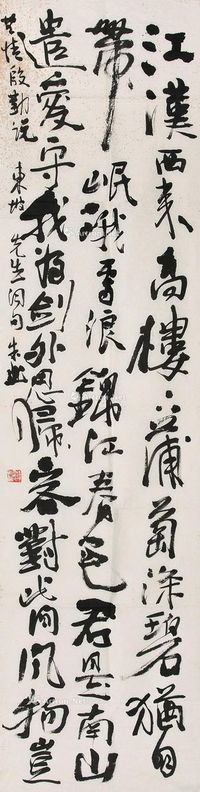 江漢西来高樓下蒲萄深碧猶自
帶岷峨雪浪錦江春色君是南山
遺愛守我為劍外思歸客對此间風物豈
無情殷勤說 東坡先生词句 朱